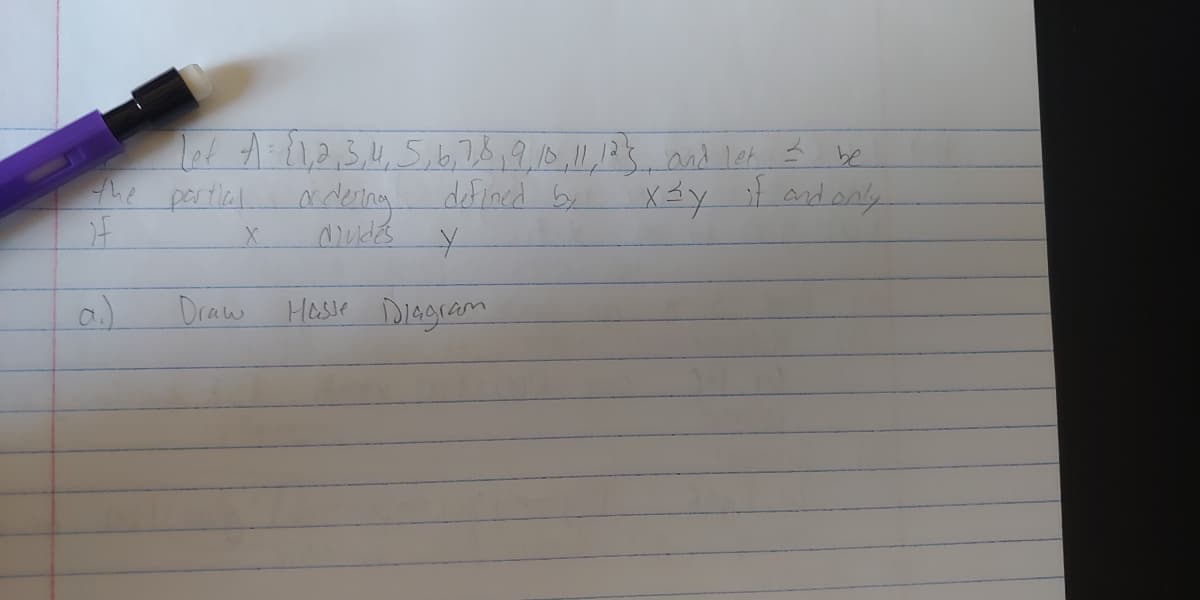 Let A = {1,2,3,4,5,6,7,8,9,10,11,12}, and let ≤ be
the partial ordering defined by x ≤ y if and only
if x divides y
a.) Draw Hasse Diagram